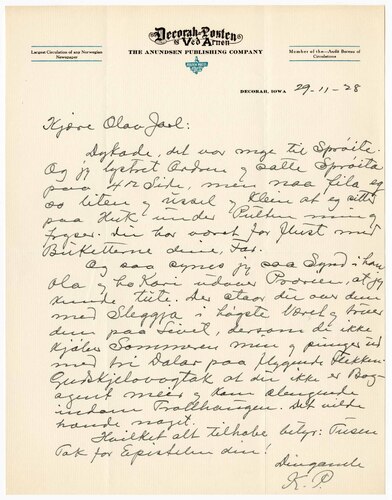 Decorah-Posten
Ved Arnen
THE ANUNDSEN PUBLISHING COMPANY
Largest Circulation of any Norwegian
Newspaper
Member of the—Audit Bureau of
Circulations
DECORAH, IOWA 29-11-28
Kjære Olav Jarl:
det var mye til Sprøite.
Og jy lystret Ordren y satte Sprøita
paa 4 Side, men naa fila eg
so liten y ussel y Klein at eg sitter
paa Huk under Pulten min y
fryser. Du har voret for med
Buketterne dine, Far.
Og saa synes jy saa Synd i han
Ola y ho Kari udover Prærien, at jy
kunde tute. Der staar du over dem
med Sleggja i høgste Været y truer
dem paa Livit, dersom di ikke
kjøber Sommeren min y punger ud
med tri Dalar paa flygende Flekken.
at du ikke er Bog-
agent meer y kun
indom Trollhaugen. Det vilde
hænde noget.
Hvilket alt tilhobe betyr: Tusen
Tak for Epistelen din!
Dingande
K. P.